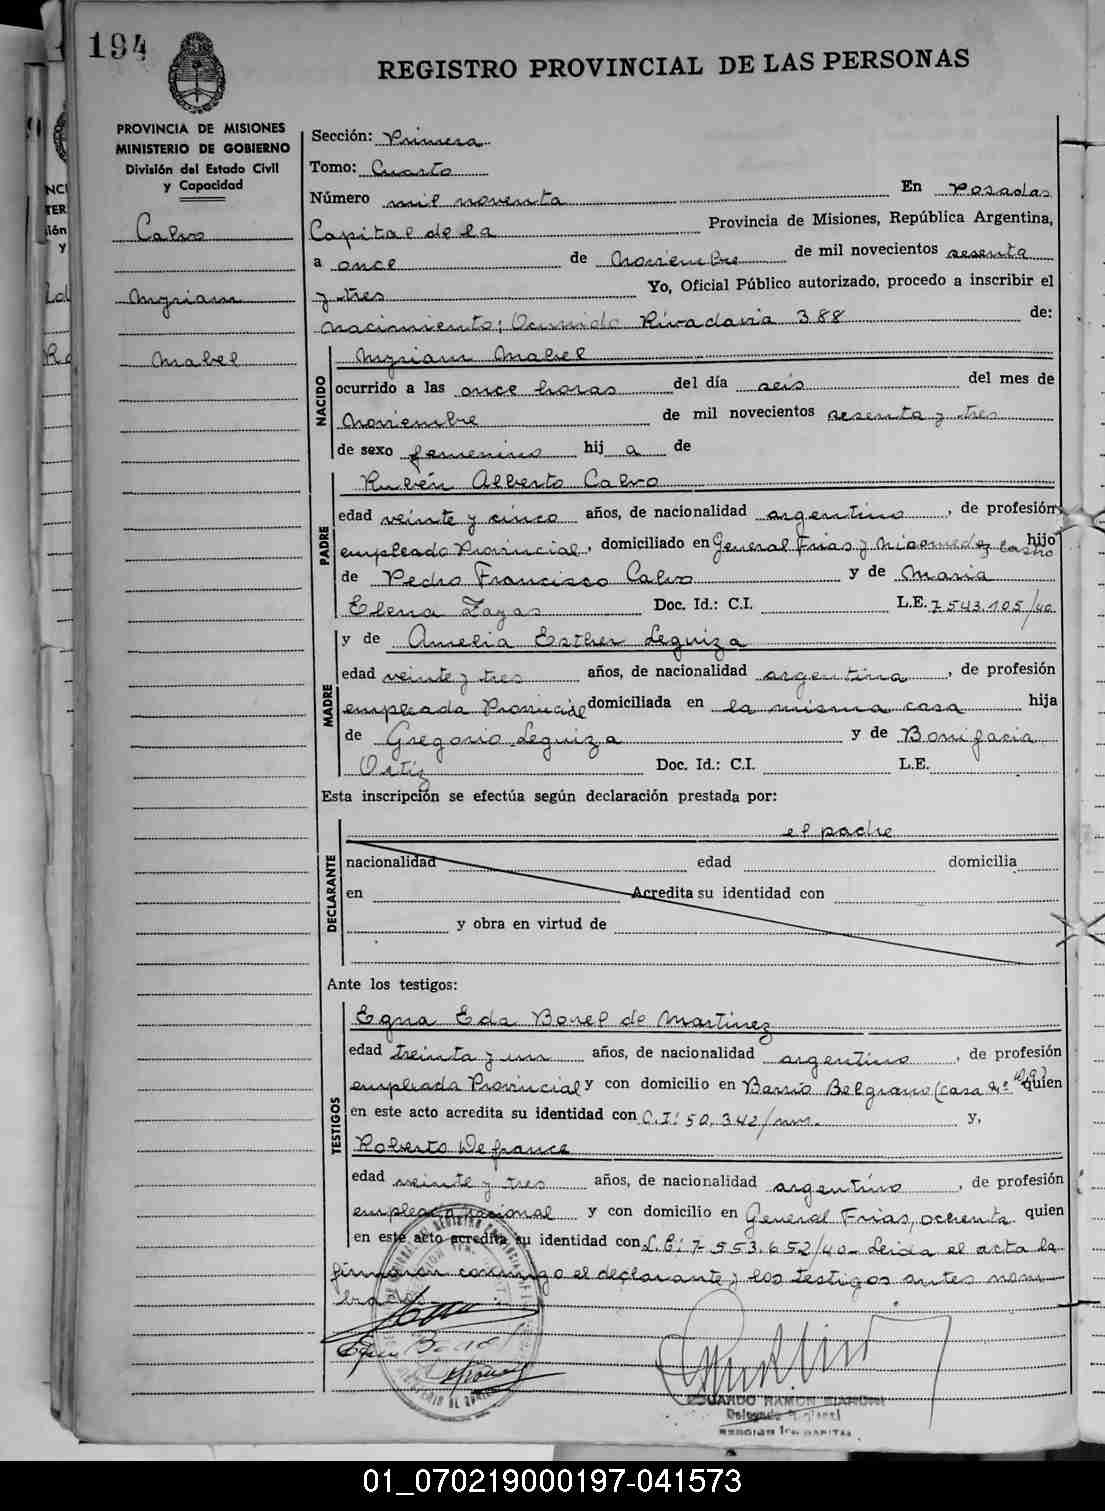 194
REGISTRO PROVINCIAL DE LAS PERSONAS
PROVINCIA DE MISIONES
MINISTERIO DE GOBIERNO
División del Estado Civil
y Capacidad
Calvo
Myriam
Mabel
Sección: Primera
Tomo: Cuarto
Número mil noventa En Posadas
Capital de la Provincia de Misiones, República Argentina,
a once de Noviembre de mil novecientos sesenta
y tres Yo, Oficial Público autorizado, procedo a inscribir el
nacimiento; Ocurrido Rivadavia 388 de:
NACIDO
Myriam Mabel
ocurrido a las once horas del día seis del mes de
Noviembre de mil novecientos sesenta y tres
de sexo femenino hij a de
PADRE
Rubén Alberto Calvo
edad veinte y cinco años, de nacionalidad argentino, de profesión
empleado Provincial, domiciliado en General Frias y Nicomedez Castro hijo
de Pedro Francisco Calvo y de Maria
Elena Zayas Doc. Id.: C.I. L.E. 7543.105/40
MADRE
y de Amelia Esther Leguiza
edad veinte y tres años, de nacionalidad argentina, de profesión
empleada Provincial domiciliada en la misma casa hija
de Gregorio Leguiza y de Bonifacia
Ortiz Doc. Id.: C.I. L.E.
Esta inscripción se efectúa según declaración prestada por:
DECLARANTE
el padre
nacionalidad edad domicilia
en Acredita su identidad con
y obra en virtud de
Ante los testigos:
TESTIGOS
Egna Eda Bonel de Martinez
edad treinta y un años, de nacionalidad argentino, de profesión
empleada Provincial y con domicilio en Barrio Belgrano (casa nº quien
en este acto acredita su identidad con C.I: 50.342/mm. y,
Roberto Defrance
edad veinte y tres años, de nacionalidad argentino, de profesión
empleado nacional y con domicilio en General Frias, ochenta quien
en este acto acredita su identidad con L.E: 7.553.652/40- Leida el acta la
firmaron conmigo el declarante y los testigos antes nom-
brados.-
EDUARDO RAMON
Delegado
REGION 1ra CAPITAL
01_070219000197-041573